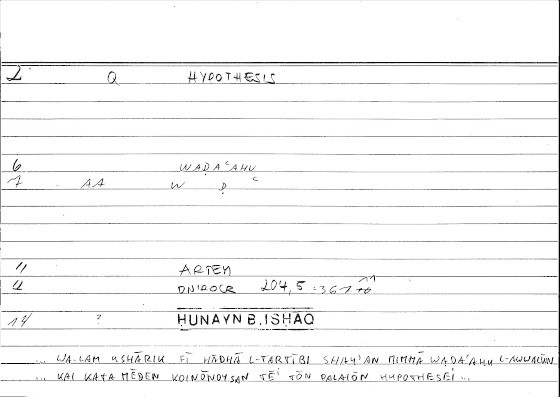 2 Q HYPOTHESIS
6 WAḌAʿAHU
7 AA W Ḍ ʿ
11 ARTEM
ONIROCR 204,5 = 367
14 ? HUNAYN B. ISHAQ
... WA-LAM USHĀRIK FĪ HĀDHĀ L-TARTĪBI SHAYʾAN MIMMĀ WAḌAʿAHU L-AWWALŪN
... KAI KATA MĒDEN KOINŌNOYSAN TĒI TŌN PALAIŌN HUPOTHESEI ...